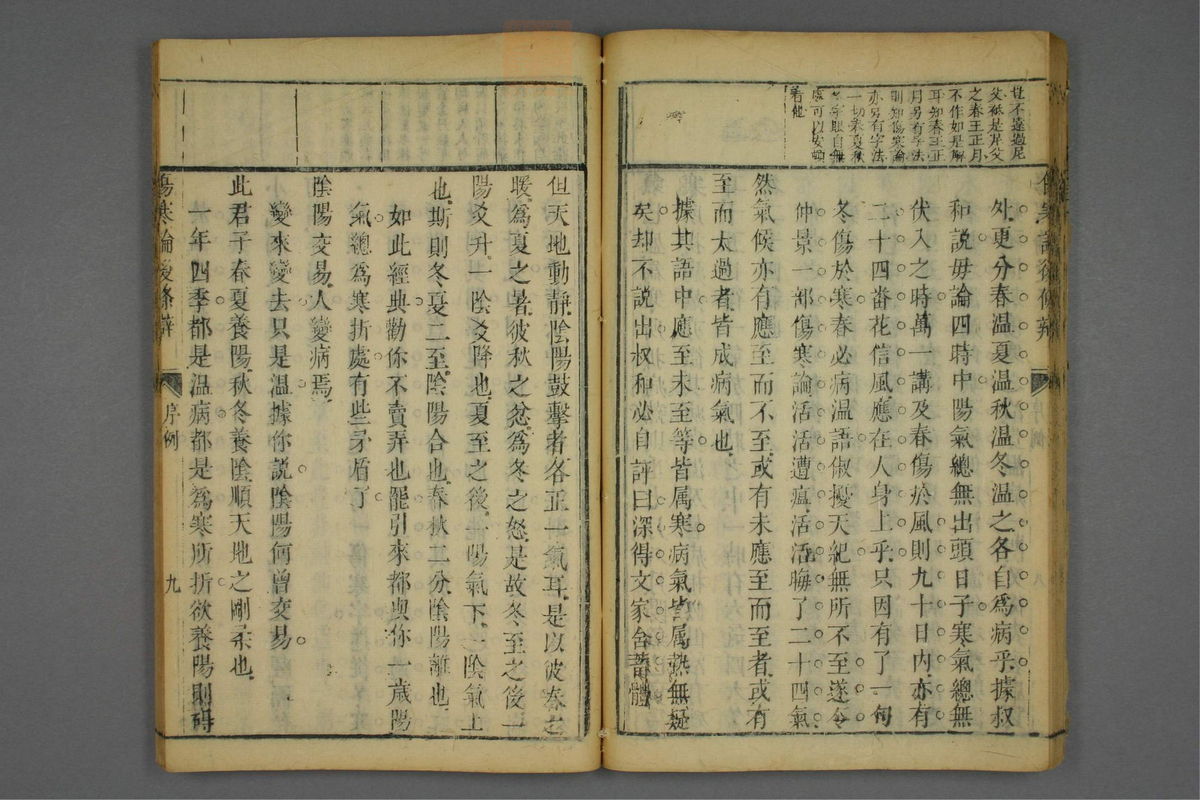 豈不達過尼
父秪是岸父
之春王正月
不作如是解
耳知春王正
月另有字法
則知傷寒論
亦另有字法
一切春夏秋
冬字眼自無
處可以安頓
着他
外更分春溫夏溫秋溫冬溫之各自爲病乎據叔
和說毋論四時中陽氣總無出頭日子寒氣總無
伏入之時萬一講及春傷於風則九十日內亦有
二十四番花信風應在人身上乎只因有了一句
冬傷於寒春必病溫語俶擾天紀無所不至遂令
仲景一部傷寒論活活遭瘟活活晦了二十四氣
然氣候亦有應至而不至或有未應至而至者或有
至而太過者皆成病氣也
據其語中應至未至等皆属寒病氣皆属熱無疑
矣却不説出叔和必自評曰深得文家含蓄體
但天地動靜陰陽鼓擊者各正一氣耳是以彼春之
暖爲夏之暑彼秋之忿爲冬之怒是故冬至之後一
陽爻升一陰爻降也夏至之後一陽氣下一陰氣上
也斯則冬夏二至陰陽合也春秋二分陰陽離也
如此經典勸你不賣弄也罷引來都與你一歲陽
氣總爲寒折處有些矛盾了
陰陽交易人變病焉
變來變去只是溫據你説陰陽何曾交易
此君子春夏養陽秋冬養陰順天地之剛柔也
一年四季都是溫病都是爲寒所折欲養陽則碍
傷寒論後條辨
序例
九